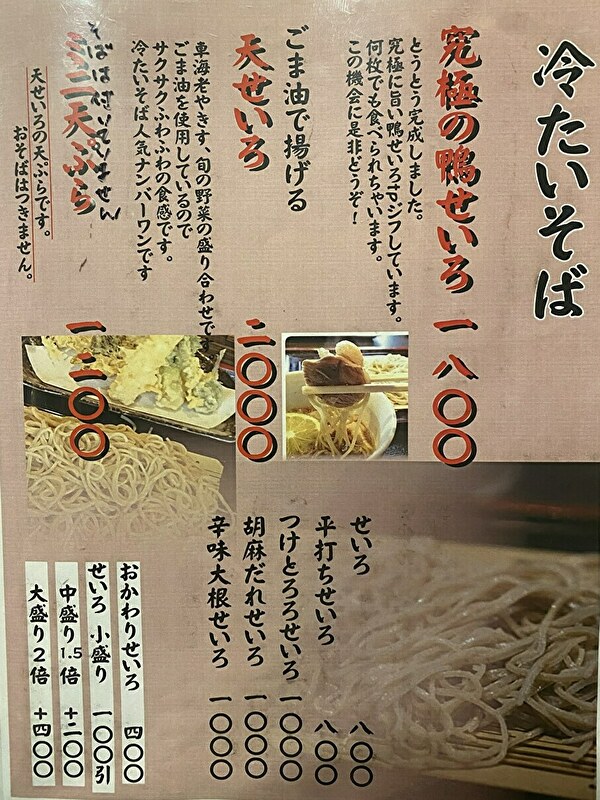 冷たいそば
究極の鴨せいろ 一八〇〇
とうとう完成しました。
究極に旨い鴨せいろ!?ジフしています。
何枚でも食べられちゃいます。
この機会に是非どうぞ!
ごま油で揚げる
天せいろ 二〇〇〇
車海老やきす、旬の野菜の盛り合わせです
ごま油を使用しているので
サクサクふわふわの食感です。
冷たいそば人気ナンバーワンです
そばは付いていません
ミニ天ぷら 一二〇〇
天せいろの天ぷらです。
おそばはつきません。
せいろ 八〇〇
平打ちせいろ 八〇〇
つけとろろせいろ 一〇〇〇
胡麻だれせいろ 一〇〇〇
辛味大根せいろ 一〇〇〇
おかわりせいろ 四〇〇
せいろ 小盛り 一〇〇引
中盛り1.5倍 +二〇〇
大盛り2倍 +四〇〇